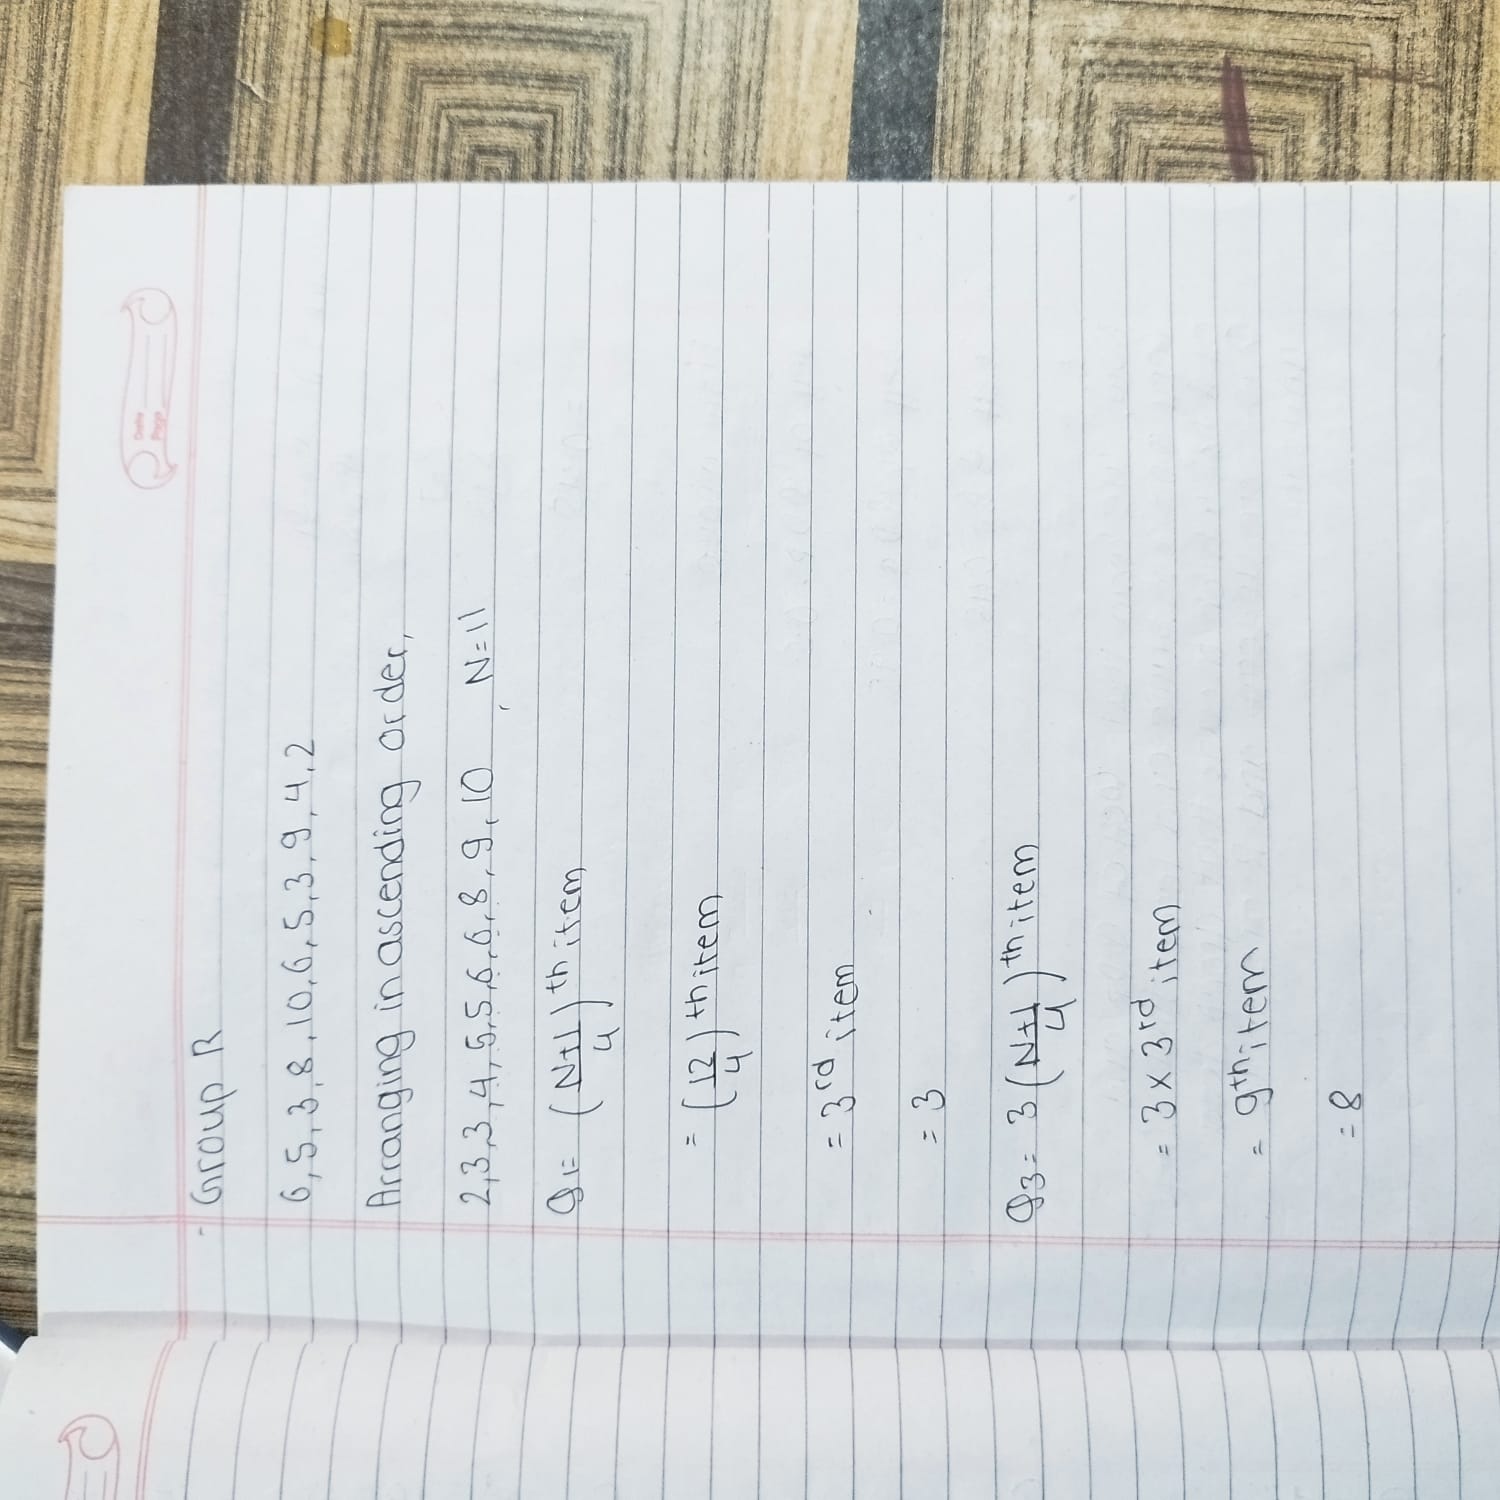 Date
Page
- Group R
6, 5, 3, 8, 10, 6, 5, 3, 9, 4, 2
Arranging in ascending order,
2, 3, 3, 4, 5, 5, 6, 6, 8, 9, 10 , N = 11
Q1 = (N+1/4)th item
= (12/4)th item
= 3rd item
= 3
Q3 = 3(N+1/4)th item
= 3 × 3rd item
= 9th item
= 8